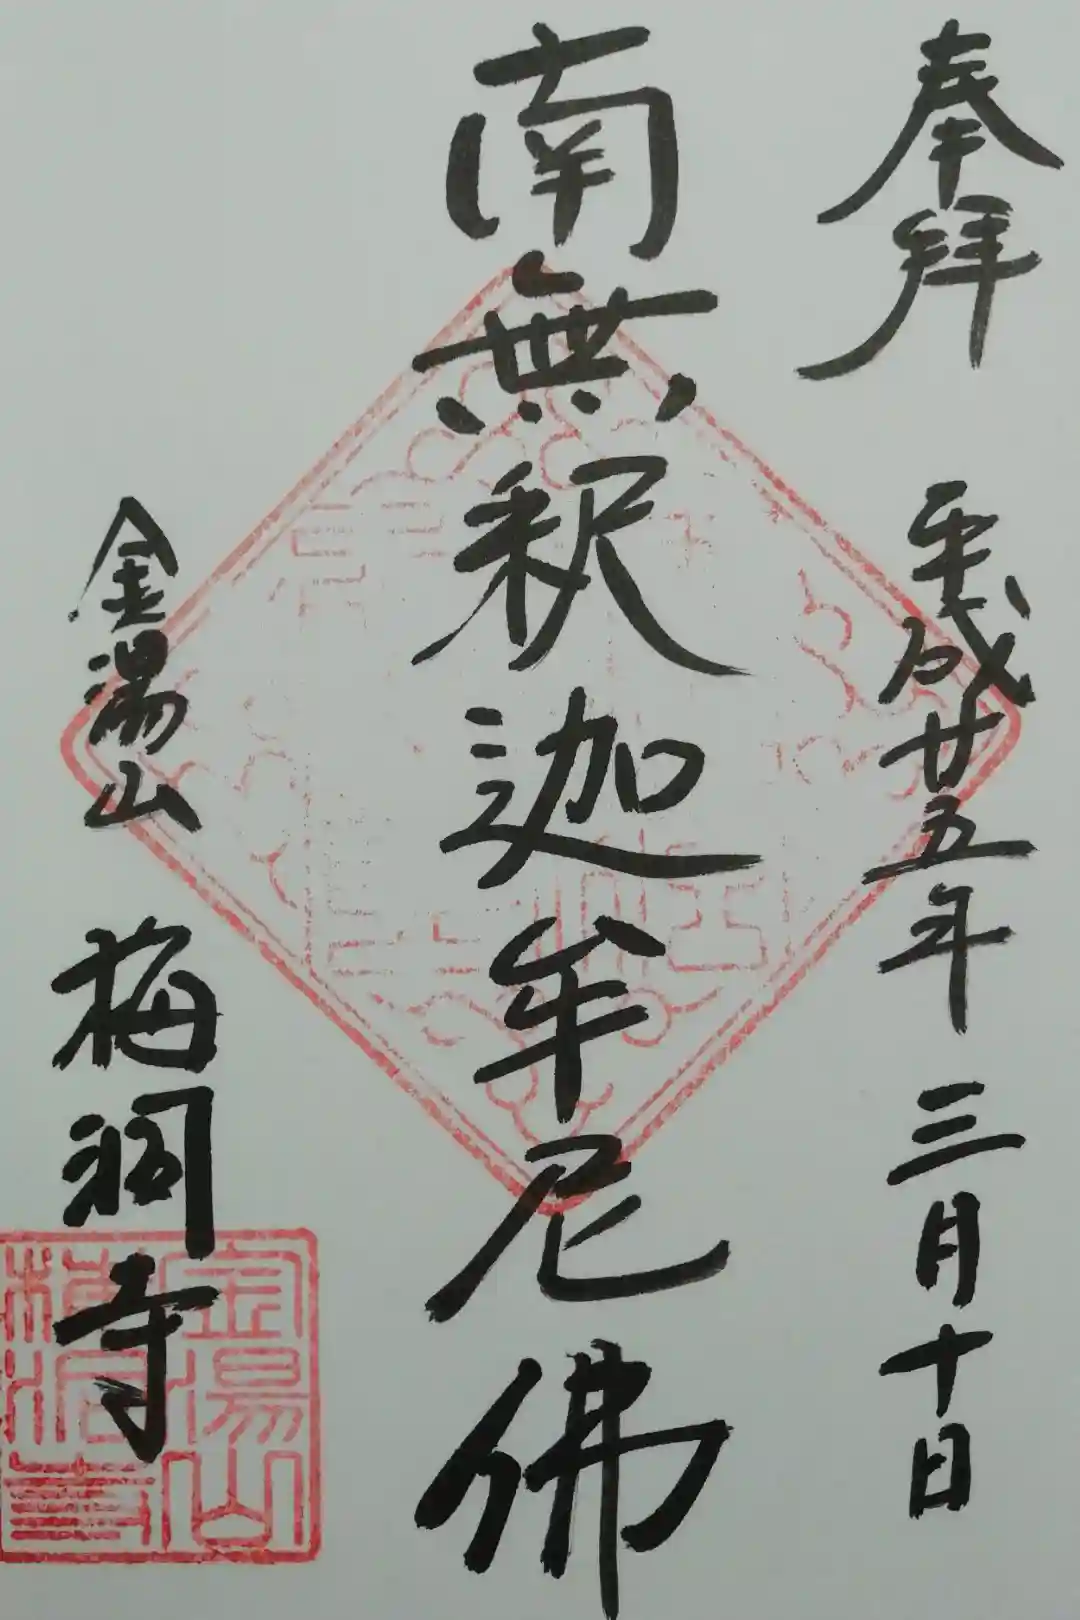 奉拝
平成廿五年三月十日
南無釈迦牟尼佛
金湯山
梅洞寺
金湯山
梅洞寺